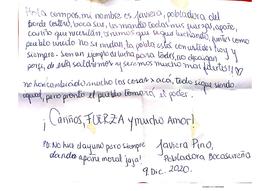 Hola compas, mi nombre es Javiera, pobladora del
borde costero, boca sur, les mando todas mis fuerzas, apañe,
cariño que necesitan, sigamos que sigue luchando, juntos como
pueblo unido. No se rindan, la población está con ustedes hoy y
siempre. Son un ejemplo de lucha para todos, no decaigan
porque, de esta saldremos y seremos mucho mas fuertes!!
no han cambiado mucho las cosas acá, todo sigue siendo
igual, pero pronto el pueblo tomará el poder.
¡Cariños, FUERZA y mucho Amor!
PD: No hay dayuno pero siempre
dando apaña moral jaja!
Javiera Pino,
Pobladora Bocasureña
9 Dic. 2020.